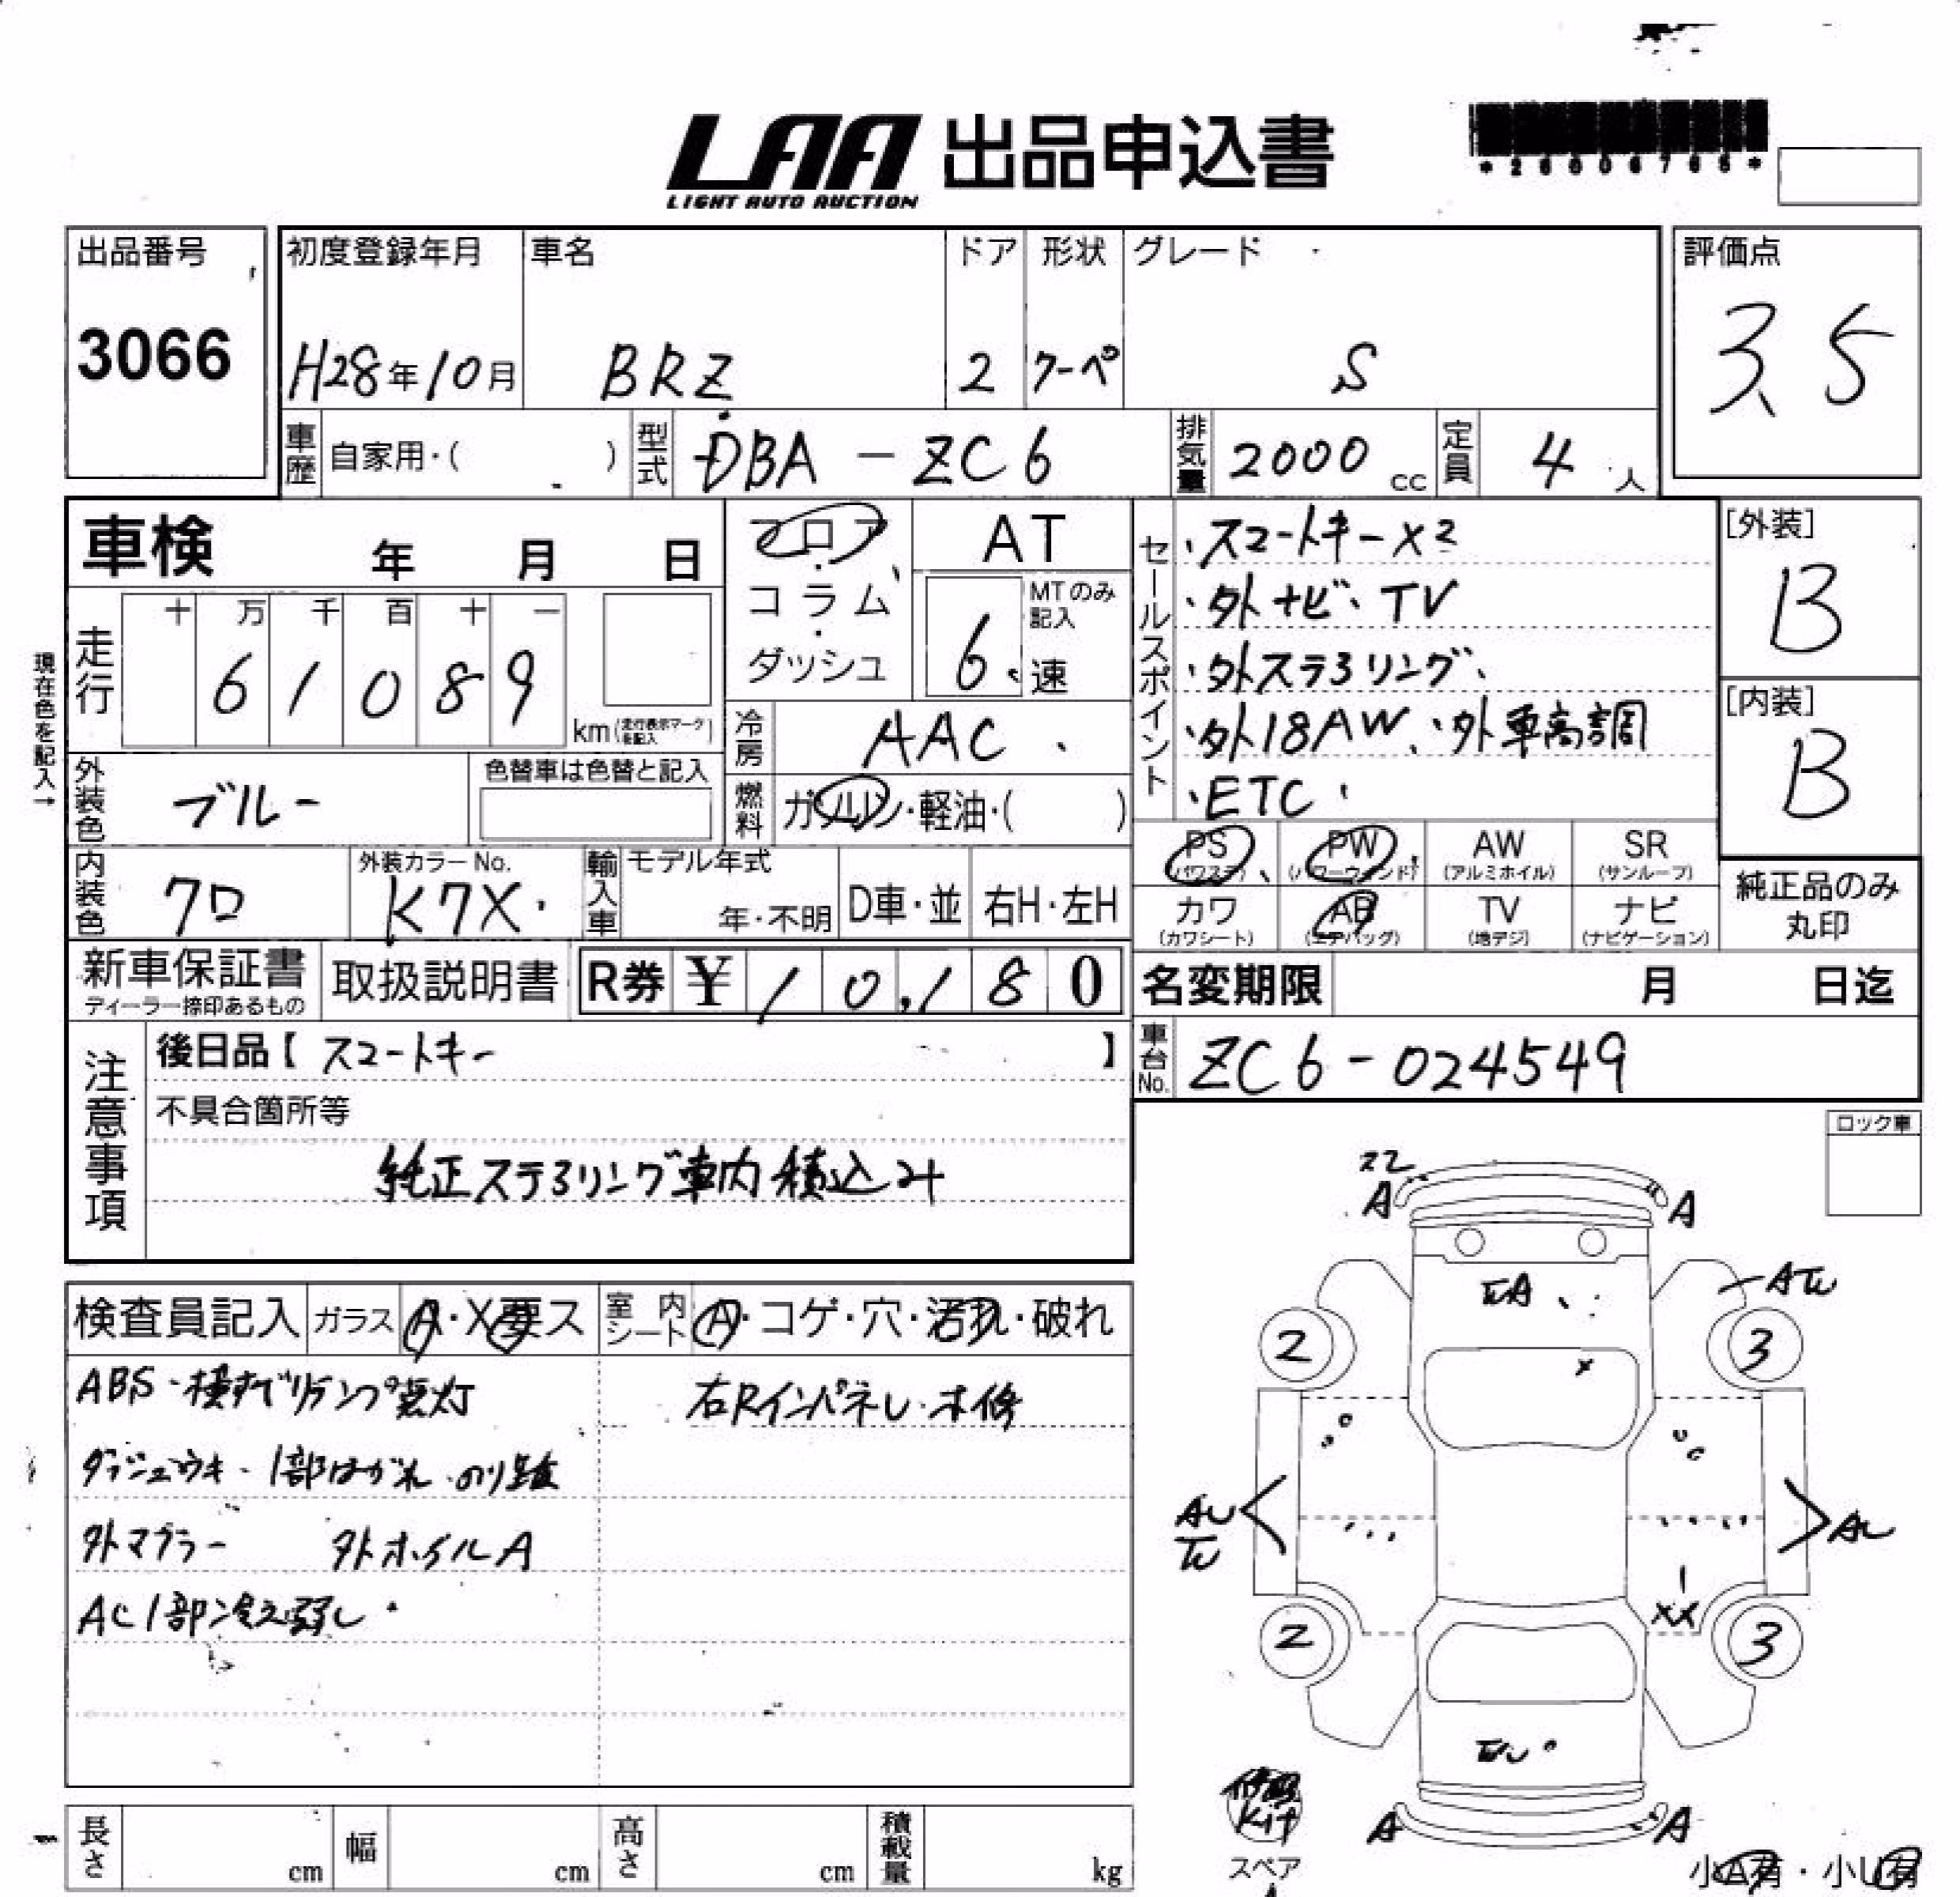 LAA 出品申込書
LIGHT AUTO AUCTION
*26006765*
出品番号 初度登録年月 車名 ドア 形状 グレード 評価点
3066 H28年10月 BRZ 2 クーペ S 3.5
車歴 自家用・( ) 型式 DBA-ZC6 排気量 2000 cc 定員 4 人
車検 年 月 日 フロア・コラム・ダッシュ AT
6 速 MTのみ記入
現在色を記入→
走行 十 万 千 百 十 一
6 1 0 8 9 km (走行表示マークを記入)
冷房 AAC
外装色 ブルー 色替車は色替と記入
燃料 ガソリン・軽油・( )
セールスポイント
・スマートキーX2
・外ナビ、TV
・外ステアリング、
・外18AW、・外車高調
・ETC
[外装]
B
[内装]
B
PS (パワステ) PW (パワーウィンド) AW (アルミホイル) SR (サンルーフ)
カワ (カワシート) AB (エアバッグ) TV (地デジ) ナビ (ナビゲーション)
純正品のみ丸印
内装色 クロ 外装カラーNo. K7X 輸入車 モデル年式 年・不明 D車・並 右H・左H
新車保証書 ディーラー捺印あるもの 取扱説明書 R券 ¥ 10,180 名変期限 月 日迄
注意事項 後日品【 スマートキー 】
車台No. ZC6-024549
不具合箇所等
純正ステアリング車内積込み
ロック車
検査員記入 ガラス A・X要ス 室内シート A・コゲ・穴・汚れ・破れ
ABS・横すべりランプ点灯
右Rインパネ
1部はがれ のり跡
外マフラー 外ホイルA
AC1部冷え弱し
A A
2 3
AU
2 3
XX
A A
Kit
スペア
小A有・小U有
長さ cm 幅 cm 高さ cm 積載量 kg